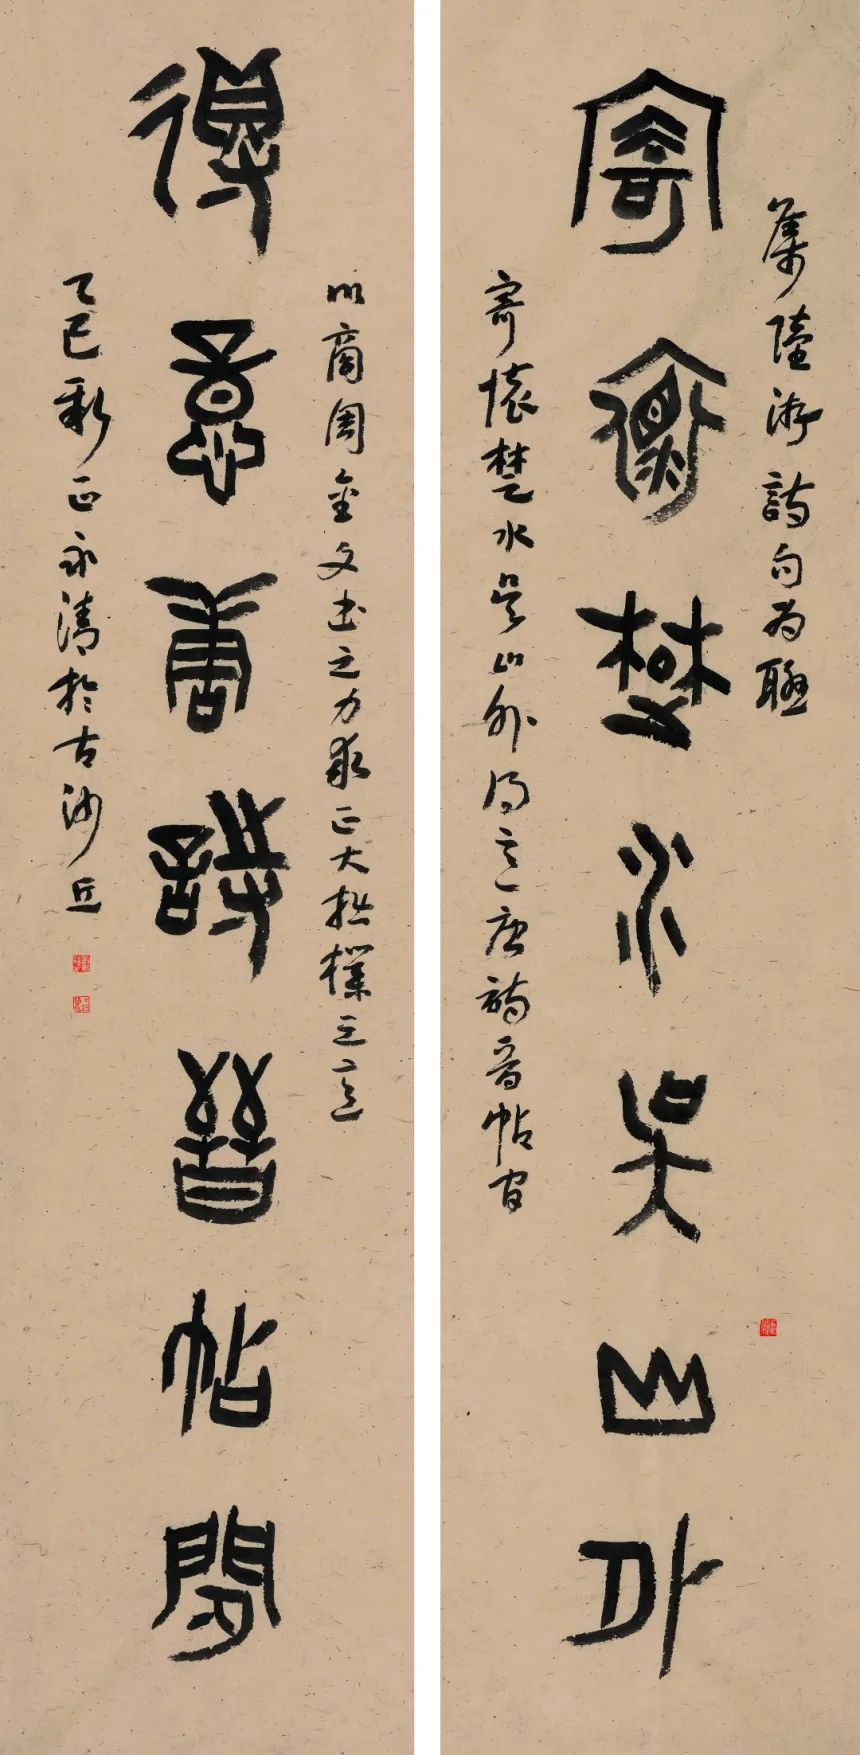 集陸游詩句為聯
寄懷楚水吳山外
寄懷楚水吳山外得意唐詩晉帖間
以商周金文書之力求正大拙樸之意
得意唐詩晉帖間
乙巳新正永清於古沙丘